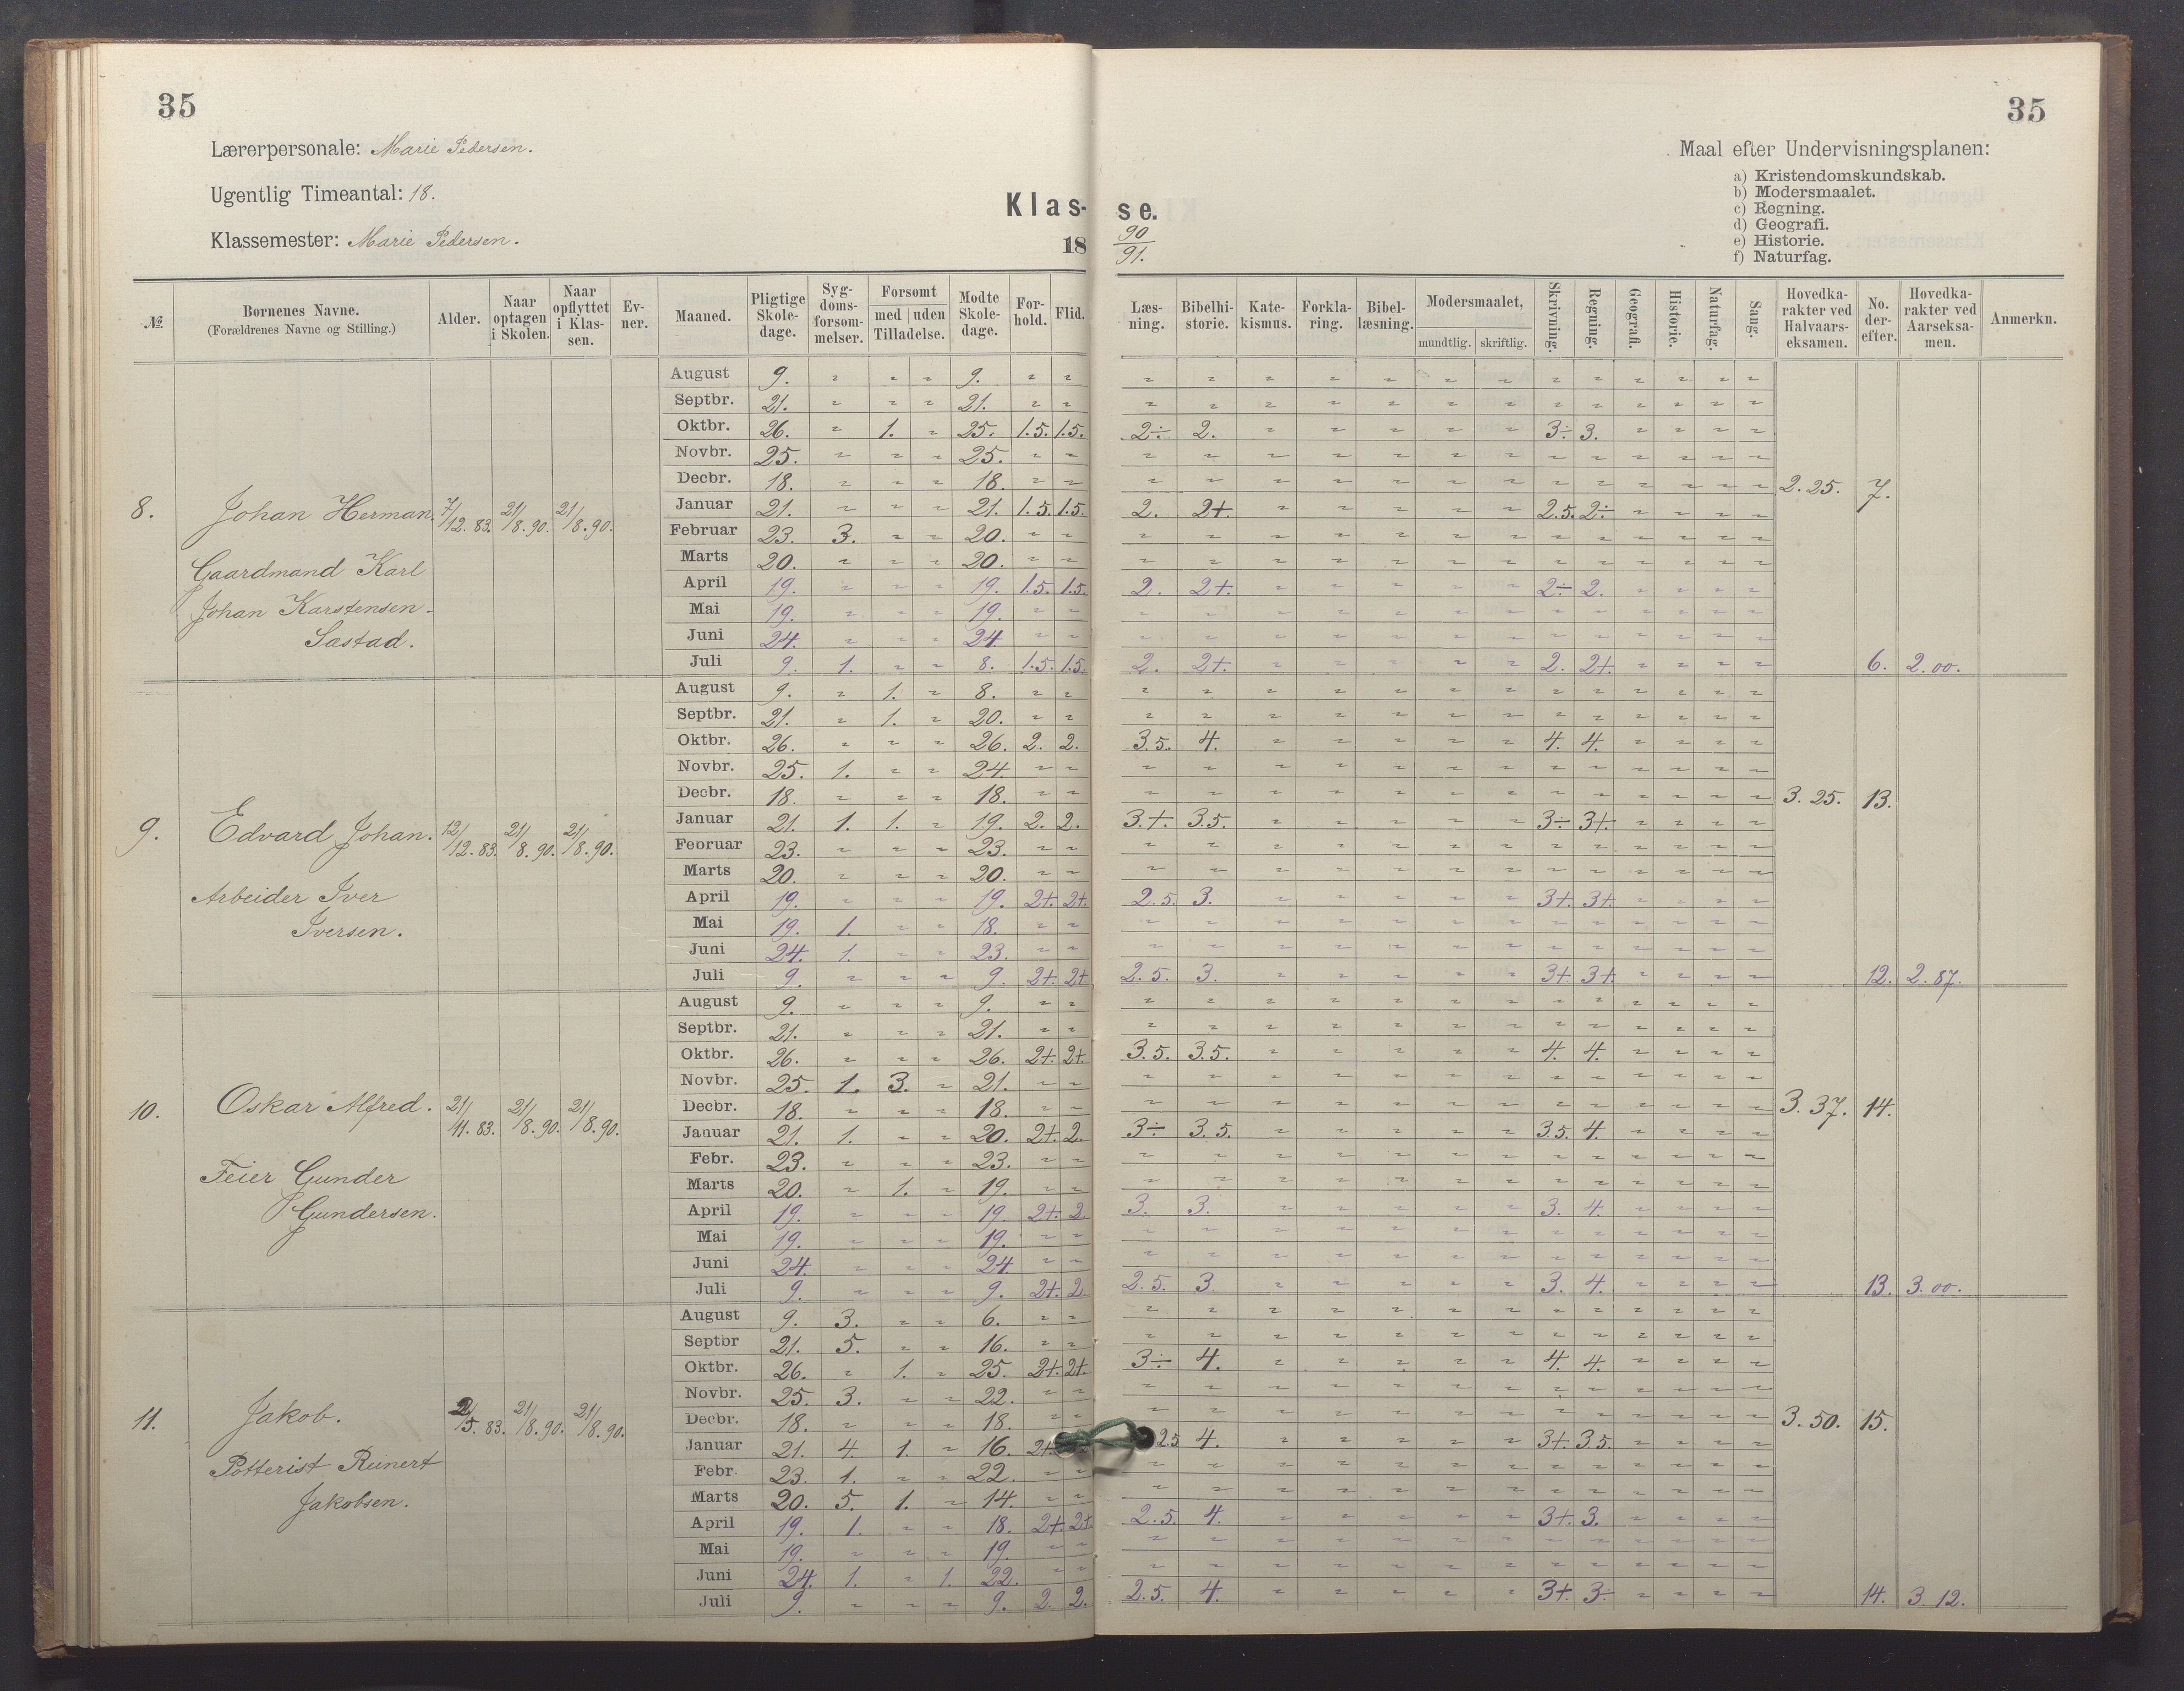 35
35
Lærerpersonale: Marie Pedersen.
Ugentlig Timeantal: 18.
Klassemester: Marie Pedersen.
Klas- se.
18 90/91.
Maal efter Undervisningsplanen:
a) Kristendomskundskab.
b) Modersmaalet.
c) Regning.
d) Geografi.
e) Historie.
f) Naturfag.
№ | Børnenes Navne. (Forældrenes Navne og Stilling.) | Alder. | Naar optagen i Skolen. | Naar opflyttet i Klassen. | Evner. | Maaned. | Pligtige Skoledage. | Sygdomsforsømmelser. | Forsømt med Tilladelse. | Forsømt uden Tilladelse. | Mødte Skoledage. | Forhold. | Flid. | Læsning. | Bibelhistorie. | Katekismus. | Forklaring. | Bibellæsning. | Modersmaalet, mundtlig. | skriftlig. | Skrivning. | Regning. | Geografi. | Historie. | Naturfag. | Sang. | Hovedkarakter ved Halvaarseksamen. | No. derefter. | Hovedkarakter ved Aarseksamen. | Anmerkn.
8. Johan Herman. 7/12. 83. 21/8. 90. 21/8. 90.
Gaardmand Karl
Johan Karstensen
Sastad.
August 9. " " " 9. " " " " " " " " " " " " " " "
Septbr. 21. " " " 21. " " " " " " " " " " " " " " "
Oktbr. 26. " 1. " 25. 1.5. 1.5. 2÷ 2. " " " " " 3÷ 3. " " " "
Novbr. 25. " " " 25. " " " " " " " " " " " " " " "
Decbr. 18. " " " 18. " " " " " " " " " " " " " " " 2.25. 7.
Januar 21. " " " 21. 1.5. 1.5. 2. 2+. " " " " " 2.5. 2÷ " " " "
Februar 23. 3. " " 20. " " " " " " " " " " " " " " "
Marts 20. " " " 20. " " " " " " " " " " " " " " "
April 19. " " " 19. 1.5. 1.5. 2. 2+. " " " " " 2÷ 2. " " " "
Mai 19. " " " 19. " " " " " " " " " " " " " " "
Juni 24. " " " 24. " " " " " " " " " " " " " " "
Juli 9. 1. " " 8. 1.5. 1.5. 2. 2+. " " " " " 2. 2+. " " " " 6. 2.00.
9. Edvard Johan. 12/12. 83. 21/8. 90. 21/8. 90.
Arbeider Iver
Iversen.
August 9. " 1. " 8. " " " " " " " " " " " " " " "
Septbr. 21. " 1. " 20. " " " " " " " " " " " " " " "
Oktbr. 26. " " " 26. 2. 2. 3.5. 4. " " " " " 4. 4. " " " "
Novbr. 25. 1. " " 24. " " " " " " " " " " " " " " "
Decbr. 18. " " " 18. " " " " " " " " " " " " " " " 3.25. 13.
Januar 21. 1. 1. " 19. 2. 2. 3.+. 3.5. " " " " " 3÷ 3+. " " " "
Februar 23. " " " 23. " " " " " " " " " " " " " " "
Marts 20. " " " 20. " " " " " " " " " " " " " " "
April 19. " " " 19. 2+. 2+. 2.5. 3. " " " " " 3+. 3+. " " " "
Mai 19. 1. " " 18. " " " " " " " " " " " " " " "
Juni 24. 1. " " 23. " " " " " " " " " " " " " " "
Juli 9. " " " 9. 2+. 2+. 2.5. 3. " " " " " 3+. 3+. " " " " 12. 2.87.
10. Oskar Alfred. 21/11. 83. 21/8. 90. 21/8. 90.
Feier Gunder
Gundersen.
August 9. " " " 9. " " " " " " " " " " " " " " "
Septbr. 21. " " " 21. " " " " " " " " " " " " " " "
Oktbr. 26. " " " 26. 2+. 2+. 3.5. 3.5. " " " " " 4. 4. " " " "
Novbr. 25. 1. 3. " 21. " " " " " " " " " " " " " " "
Decbr. 18. " " " 18. " " " " " " " " " " " " " " " 3.37. 14.
Januar 21. 1. " " 20. 2+. 2. 3÷ 3.5. " " " " " 3.5. 4. " " " "
Febr. 23. " " " 23. " " " " " " " " " " " " " " "
Marts 20. " 1. " 19. " " " " " " " " " " " " " " "
April 19. " " " 19. 2+. 2 3. 3. " " " " " 3. 4. " " " "
Mai 19. " " " 19. " " " " " " " " " " " " " " "
Juni 24. " " " 24. " " " " " " " " " " " " " " "
Juli 9. " " " 9. 2+. 2 2.5. 3 " " " " " 3. 4. " " " " 13. 3.00.
11. Jakob. 83. 21/8. 90. 21/8. 90.
Potterist Reinert
Jakobsen.
August 9. 3. " " 6. " " " " " " " " " " " " " " "
Septbr 21. 5. " " 16. " " " " " " " " " " " " " " "
Oktbr. 26. " 1. " 25. 2+. 2+. 3÷ 4. " " " " " 4. 4. " " " "
Novbr. 25. 3. " " 22. " " " " " " " " " " " " " " "
Decbr. 18. " " " 18. " " " " " " " " " " " " " " " 3.50. 15.
Januar 21. 4. 1. " 16. 2+. 2.5 4. " " " " " 3+. 3.5. " " " "
Febr. 23. 1. " " 22. " " " " " " " " " " " " " " "
Marts 20. 5. 1. " 14. " " " " " " " " " " " " " " "
April 19. 1. " " 18. 2+. 2+ 2.5. 4. " " " " " 3+. 3. " " " "
Mai 19. " " " 19. " " " " " " " " " " " " " " "
Juni 24. 1. " 1. 22. " " " " " " " " " " " " " " "
Juli 9. " " " 9. 2. 2. 2.5. 4. " " " " " 3+. 3÷ " " " " 14. 3.12.